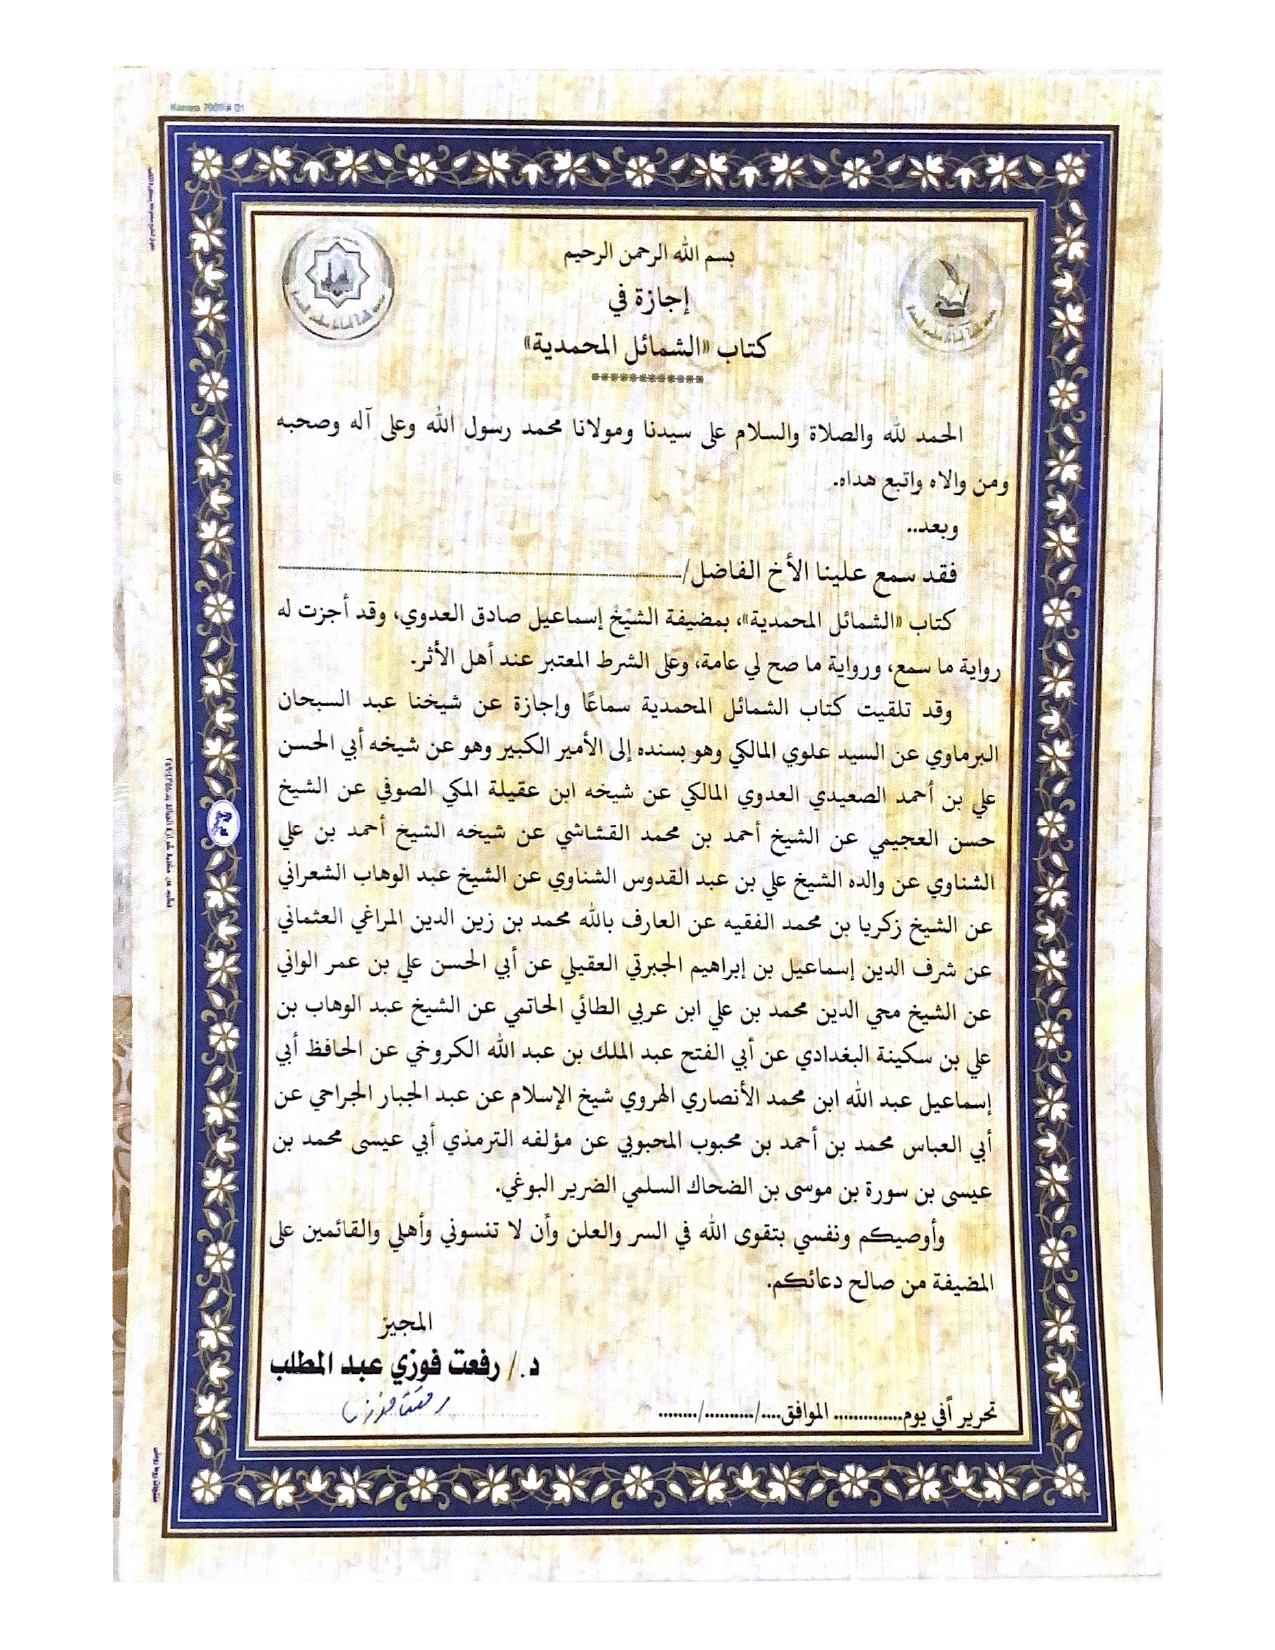 بسم الله الرحمن الرحيم
إجازة في
كتاب «الشمائل المحمدية»
************
الحمد لله والصلاة والسلام على سيدنا ومولانا محمد رسول الله وعلى آله وصحبه
ومن والاه واتبع هداه.
وبعد..
فقد سمع علينا الأخ الفاضل/
كتاب «الشمائل المحمدية»، بمضيفة الشيخ إسماعيل صادق العدوي، وقد أجزت له
رواية ما سمع، ورواية ما صح لي عامة، وعلى الشرط المعتبر عند أهل الأثر.
وقد تلقيت كتاب الشمائل المحمدية سماعًا وإجازة عن شيخنا عبد السبحان
البرماوي عن السيد علوي المالكي وهو بسنده إلى الأمير الكبير وهو عن شيخه أبي الحسن
علي بن أحمد الصعيدي العدوي المالكي عن شيخه ابن عقيلة المكي الصوفي عن الشيخ
حسن العجيمي عن الشيخ أحمد بن محمد القشاشي عن شيخه الشيخ أحمد بن علي
الشناوي عن والده الشيخ علي بن عبد القدوس الشناوي عن الشيخ عبد الوهاب الشعراني
عن الشيخ زكريا بن محمد الفقيه عن العارف بالله محمد بن زين الدين المراغي العثماني
عن شرف الدين إسماعيل بن إبراهيم الجبرتي العقيلي عن أبي الحسن علي بن عمر الواني
عن الشيخ محي الدين محمد بن علي ابن عربي الطائي الحاتمي عن الشيخ عبد الوهاب بن
علي بن سكينة البغدادي عن أبي الفتح عبد الملك بن عبد الله الكروخي عن الحافظ أبي
إسماعيل عبد الله ابن محمد الأنصاري الهروي شيخ الإسلام عن عبد الجبار الجراحي عن
أبي العباس محمد بن أحمد بن محبوب المحبوبي عن مؤلفه الترمذي أبي عيسى محمد بن
عيسى بن سورة بن موسى بن الضحاك السلمي الضرير البوغي.
وأوصيكم ونفسي بتقوى الله في السر والعلن وأن لا تنسوني وأهلي والقائمين على
المضيفة من صالح دعائكم.
المجيز
د./ رفعت فوزي عبد المطلب
رفعت فوزي
تحرير أفي يوم.............. الموافق..../........../........